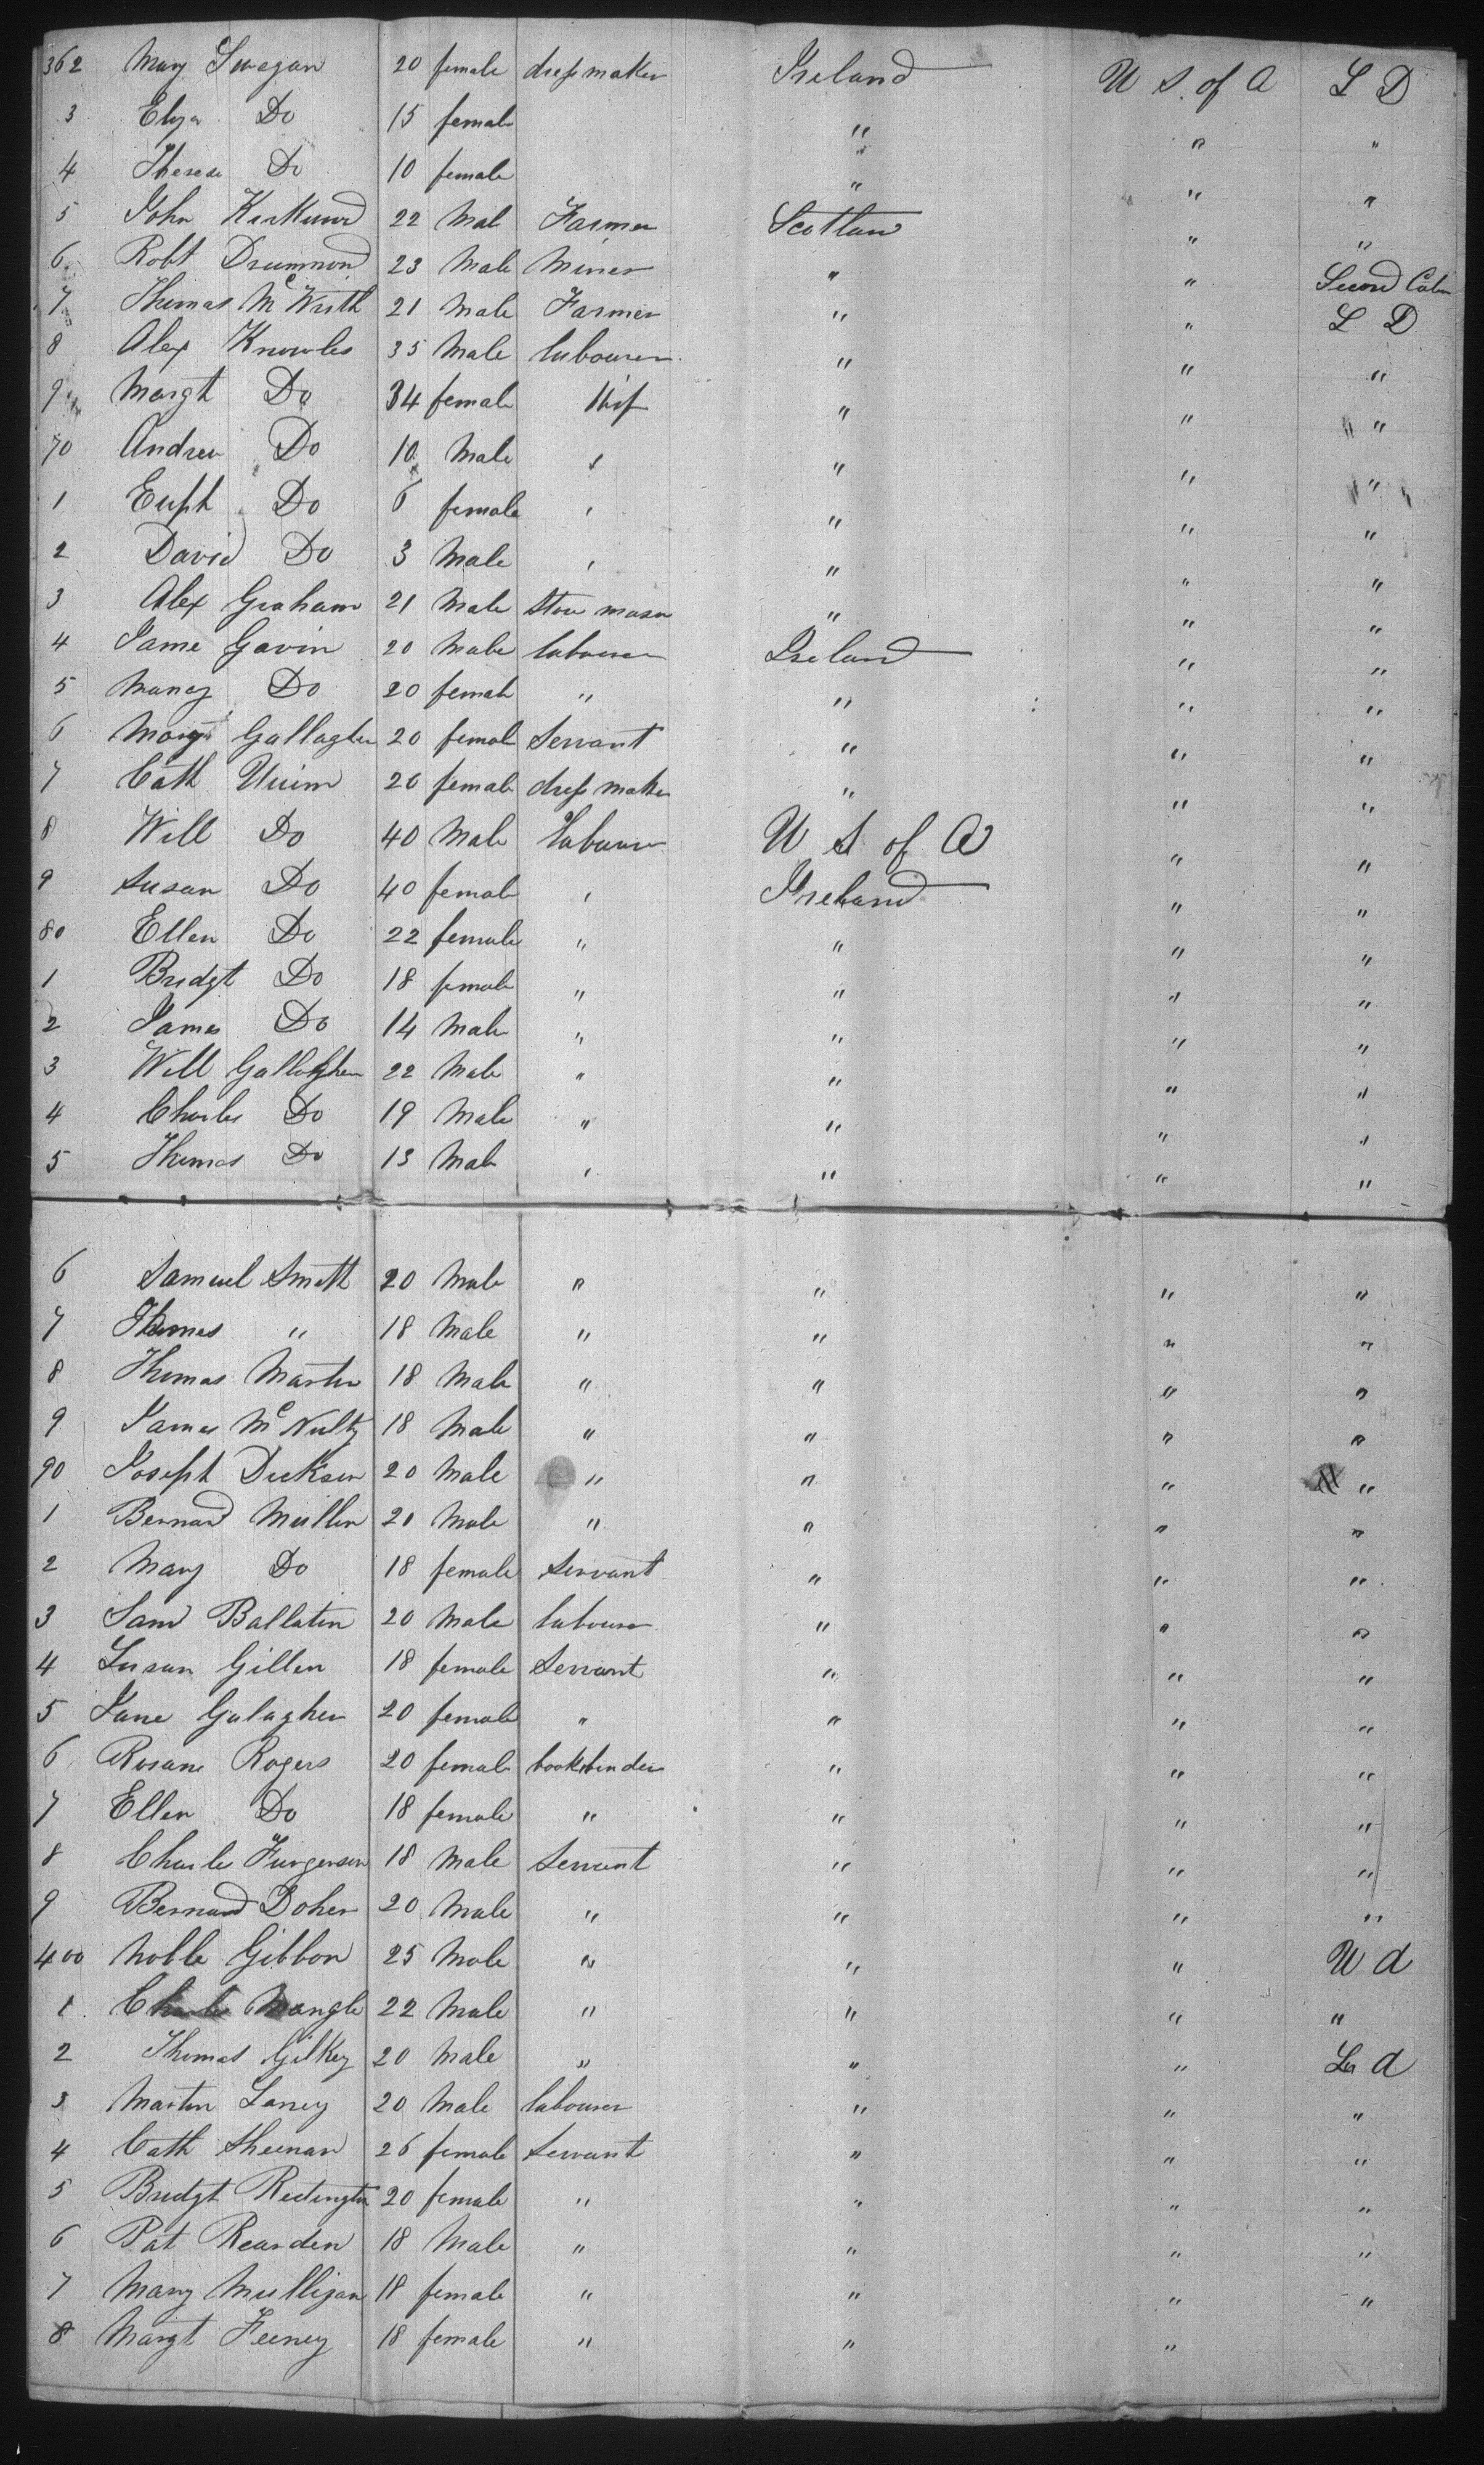 362 Mary Swegan 20 female dressmaker Ireland U S. of A L D
3 Eliza Do 15 female " " "
4 Theresa Do 10 female " " "
5 John Kirkwood 22 Mal Farmer Scotland " "
6 Robt Drummond 23 Male Miner " " Second Cabn
7 Thomas McWrath 21 Male Farmer " " L D
8 Alex Knowles 35 Male labourer " " "
9 Margt Do 34 female Wif " " "
70 Andrew Do 10 Male " " " "
1 Euph Do 6 female " " " "
2 David Do 3 Male " " " "
3 Alex Graham 21 Male Stone mason " " "
4 Jame Gavin 20 Male labourer Ireland " "
5 Mary Do 20 female " " " "
6 Margt Gallagher 20 female Servant " " "
7 Cath 20 female dress maker " " "
8 Will Do 40 Male labourer U S of A " "
9 Susan Do 40 female " Ireland " "
80 Ellen Do 22 female " " " "
1 Bridgt Do 18 female " " " "
2 James Do 14 Male " " " "
3 Will Gallagher 22 Male " " " "
4 Charles Do 19 Male " " " "
5 Thomas Do 13 Male " " " "
6 Samuel Smith 20 Male " " " "
7 Thomas " 18 Male " " " "
8 Thomas Martin 18 Male " " " "
9 James McNulty 18 Male " " " "
90 Joseph Dickson 20 Male " " " "
1 Bernard Mullen 20 Male " " " "
2 Mary Do 18 female Servant " " "
3 Saml Ballatin 20 Male labourer " " "
4 Susan Gillen 18 female Servant " " "
5 Jane Galagher 20 female " " " "
6 Rosane Rogers 20 female bookbinder " " "
7 Ellen Do 18 female " " " "
8 Charles Furgerson 18 Male Servant " " "
9 Bernard Doher 20 Male " " " "
400 Noble Gibbon 25 Male " " " U d
1 Charles Mangle 22 Male " " " "
2 Thomas Gilkey 20 Male " " " L d
3 Martin Laney 20 Male labourer " " "
4 Cath Sheenan 26 female Servant " " "
5 Bridgt Redington 20 female " " " "
6 Pat Rearden 18 Male " " " "
7 Mary Mulligan 18 female " " " "
8 Margt Feeney 18 female " " "